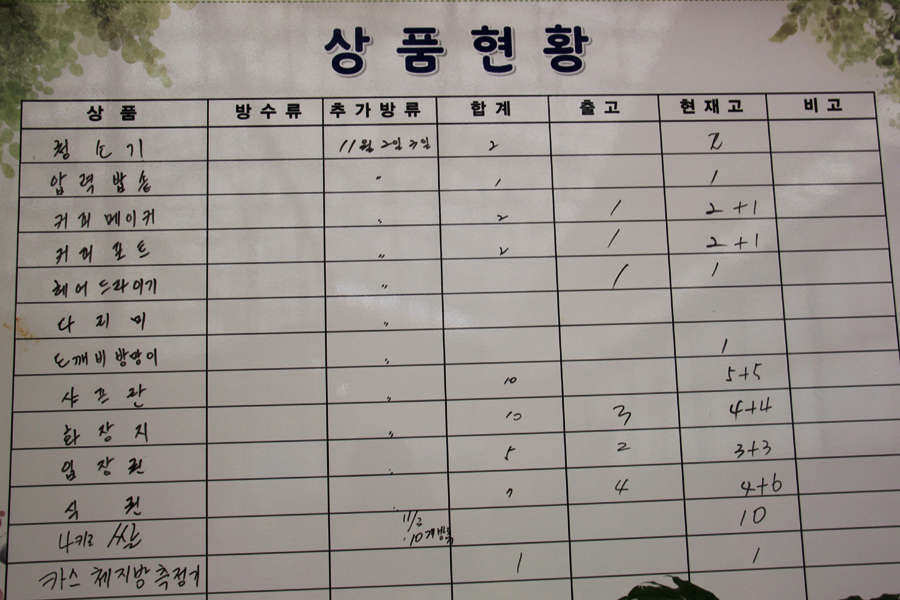 상품현황
상 품 방수류 추가방류 합계 출고 현재고 비고
청 소 기 11월 2일 3일 2 2
압력밥솥 〃 1 1
커피메이커 〃 2 1 2+1
커피포트 〃 2 1 2+1
헤어드라이기 〃 1 1
다리미 〃
도깨비방망이 〃 1
샤프란 〃 10 5+5
화장지 〃 10 3 4+4
입장권 5 2 3+3
식 권 〃 4 4+6
4키로 쌀 11/2 10개 10
카스 체지방측정기 1 1